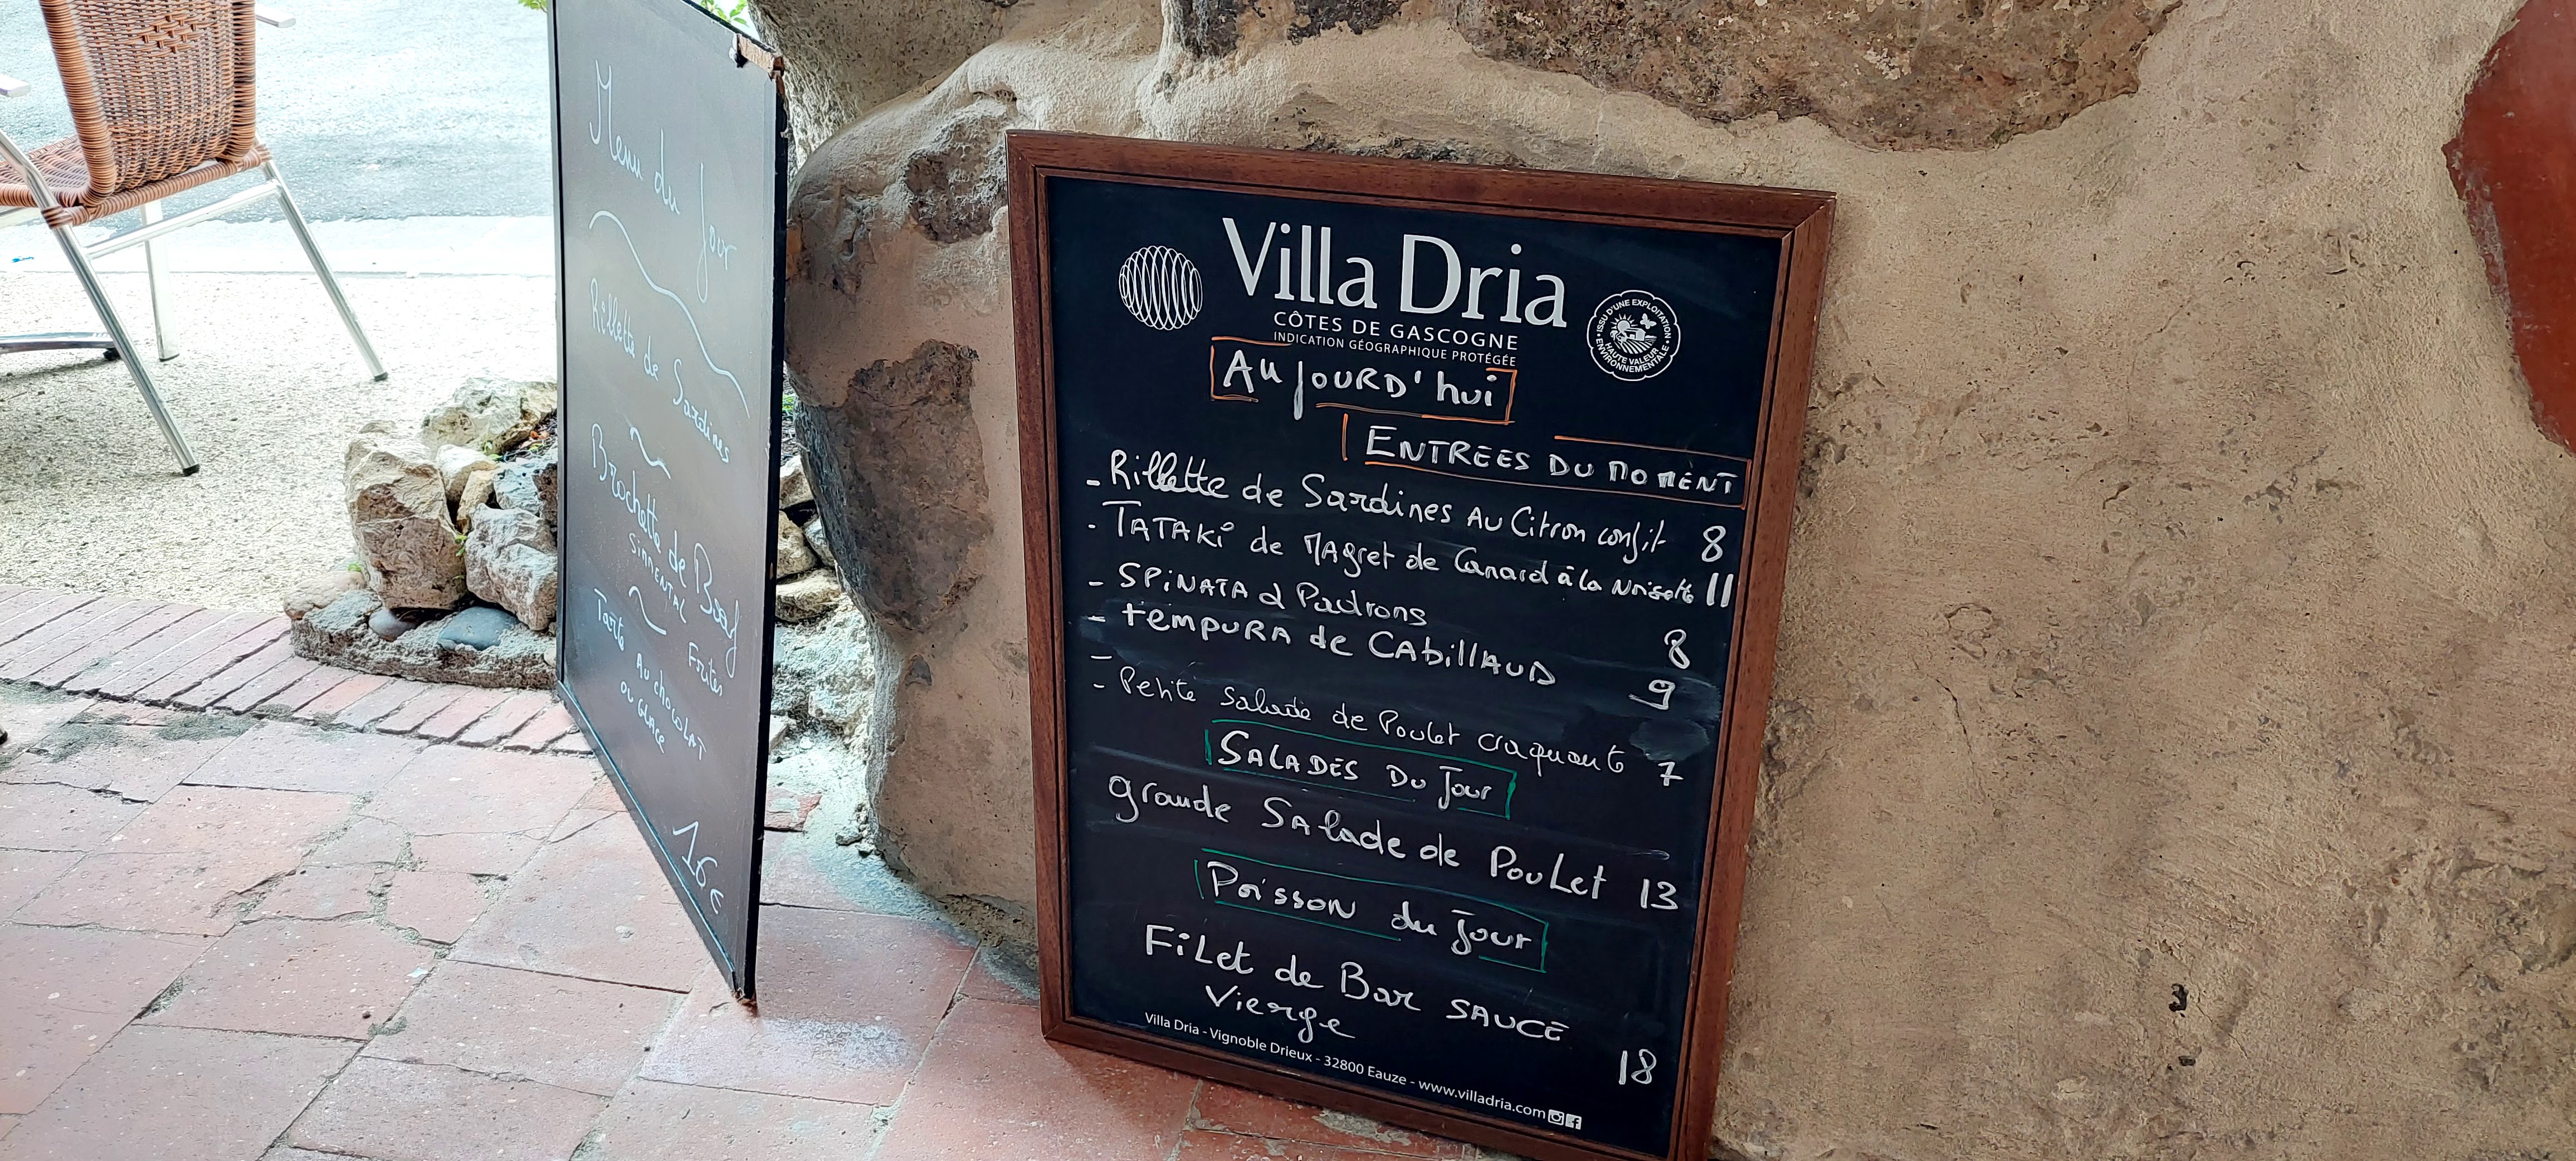 Menu du Jour
Rillette de Sardines
Brochette de Bœuf
SIMMENTAL Frites
Tarte Au chocolAT
ou GLAce
16€
Villa Dria
CÔTES DE GASCOGNE
INDICATION GÉOGRAPHIQUE PROTÉGÉE
ISSU D'UNE EXPLOITATION
HAUTE VALEUR
ENVIRONNEMENTALE
AUJOURD'hui
ENTREES DU MOMENT
- Rillette de Sardines AU Citron confit 8
- TATAKi de MAgret de Canard à la Noisette 11
- SPiNATA & Padrons 8
- tempura de CAbillAUD 9
-
- Petite salade de Poulet craquante 7
SALADES DU Jour
grande SAlade de PouLet 13
Poisson du Jour
FiLet de Bar SAUCE
Vierge 18
Villa Dria - Vignoble Drieux - 32800 Eauze - www.villadria.com